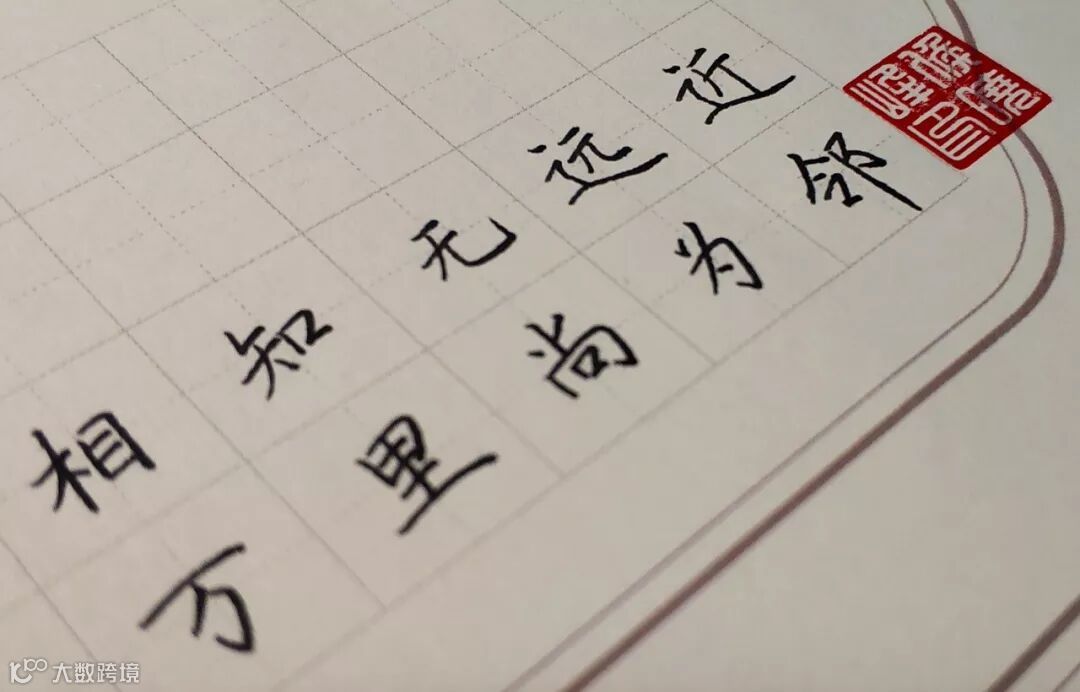 相知无远近
万里尚为邻
大数跨境